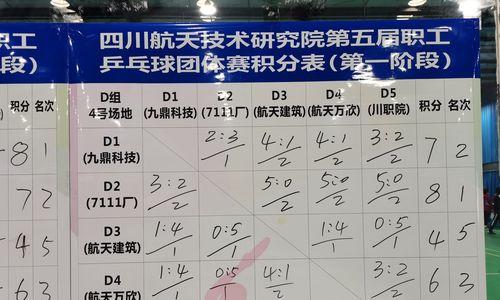 职工
段)
积分 名次
8 1
7 2
4 5
6 3
四川航天技术研究院第五届职工
乒乓球团体赛积分表(第一阶段)
D组 D1 D2 D3 D4 D5 积分 名次
4号场地 (九鼎科技) (7111厂) (航天建筑) (航天万欣) (川职院)
D1 2:3 4:1 4:1 3:2 7 2
(九鼎科技) 1 2 2 2
D2 3:2 5:0 5:0 5:0 8 1
(7111厂) 2 2 2 2
D3 1:4 0:5 1:4 0:5 4 5
(航天建筑) 1 1 1 1
D4 1:4 0:5 4:1 3:2 6 3
(航天万欣) 1 1 2 2